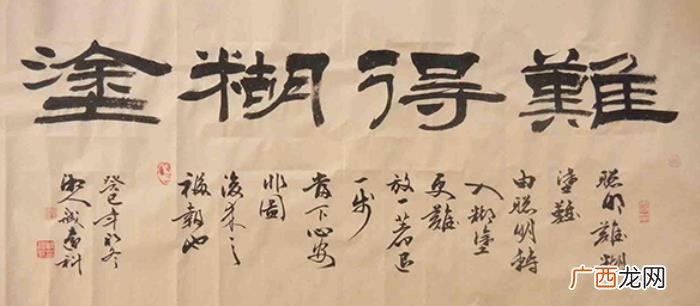 難得糊塗
聰明難糊
塗難
由聰明轉
入糊塗
更難
放一著退
一步
當下心安
非圖
後來之
福報也
癸巳年冬
广西龙网